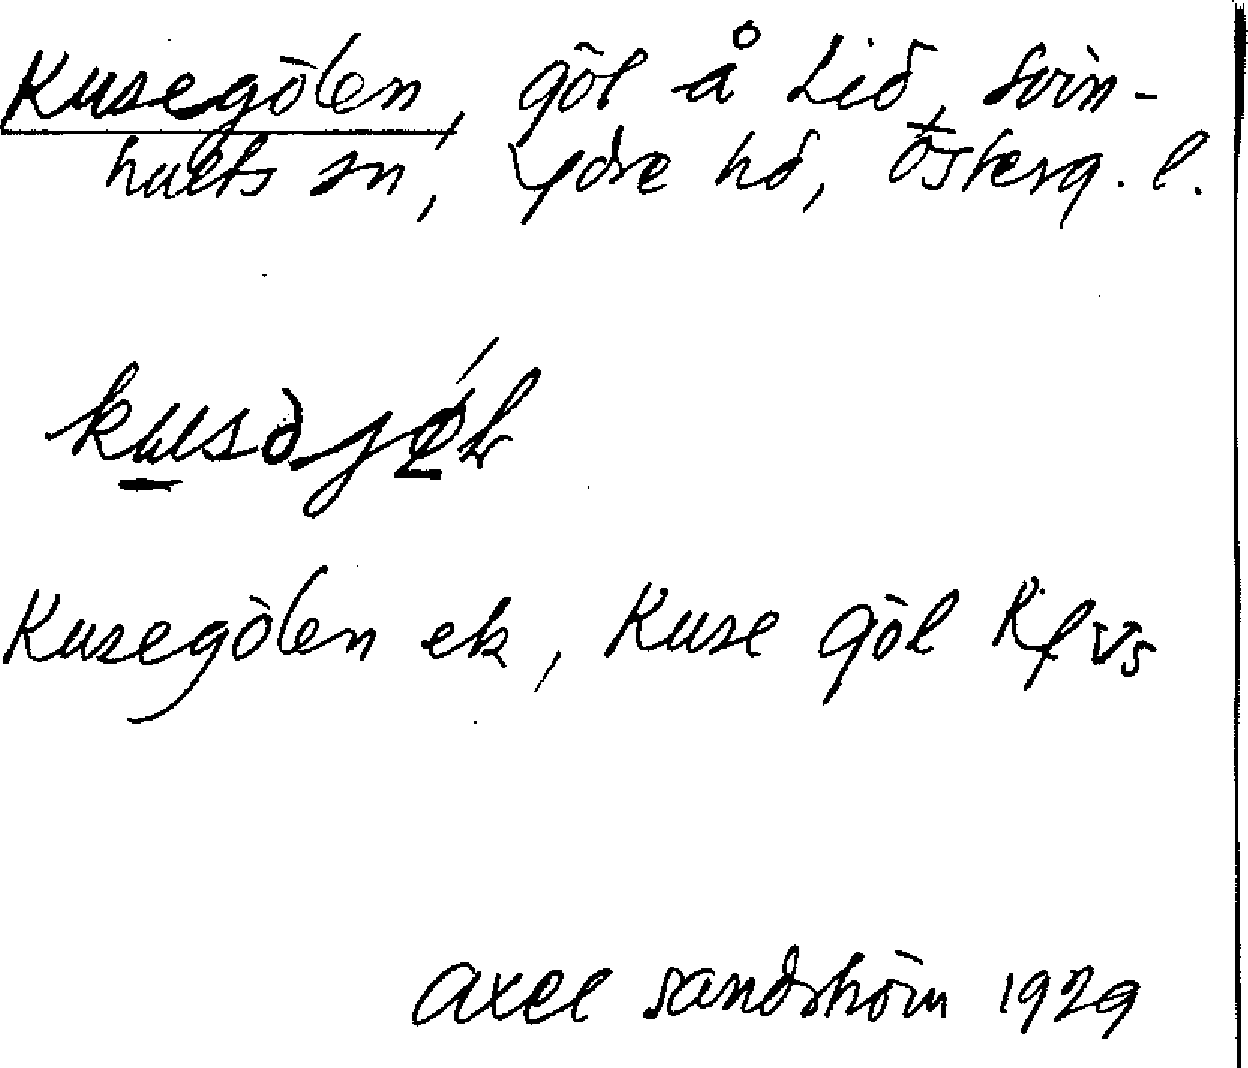 Kusegölen, göl å Lid, Svin-
hults sn, Ydre hd, Österg. l.
Kusegölen ek, Kuse göl
Axel Sandström 1929